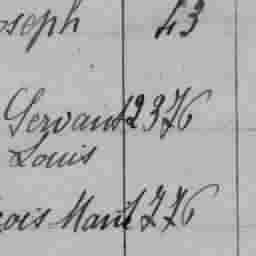 oseph 43
Servant 2376
Louis
çois Mant 776